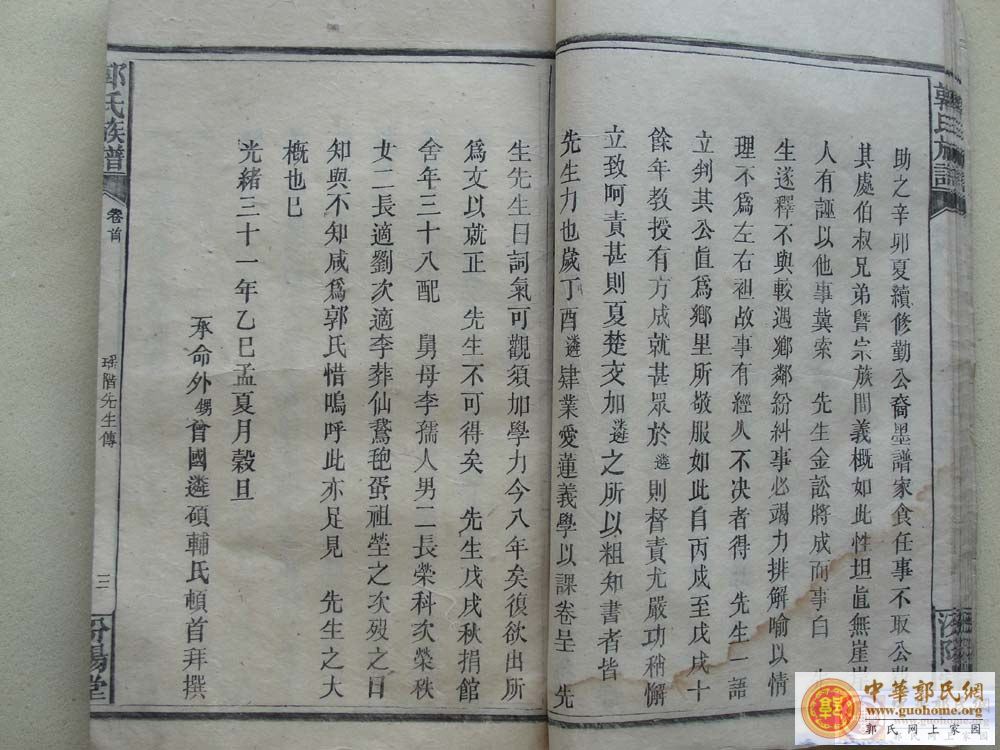 助之辛卯夏續修勤公裔墨譜家食任事不取公
其處伯叔兄弟暨宗族間義概如此性坦直無崖
人有誣以他事冀索 先生金訟將成而事白
生遂釋不與較遇鄉鄰紛糾事必竭力排解喻以情
理不爲左右袒故事有經人不决者得 先生一語
立判其公直爲鄉里所敬服如此自丙戌至戊戌十
餘年教授有方成就甚眾於遴則督責尤嚴功稍懈
立致呵責甚則夏楚交加遴之所以粗知書者皆
先生力也歲丁酉遴肄業愛蓮義學以課卷呈 先
生先生曰詞氣可觀須加學力今八年矣復欲出所
爲文以就正 先生不可得矣 先生戊戌秋捐館
舍年三十八配 舅母李孺人男二長榮科次榮秩
女二長適劉次適李葬仙鵞孵蛋祖塋之次歿之日
知與不知咸爲郭氏惜嗚呼此亦足見 先生之大
概也已
光緒三十一年乙巳孟夏月穀旦
承命外甥曾國遴碩輔氏頓首拜撰
郭氏族譜
卷首
瑤階先生傳
三
汾陽堂
郭氏族譜
中華郭氏網
www.guohome.org
郭氏网上家园